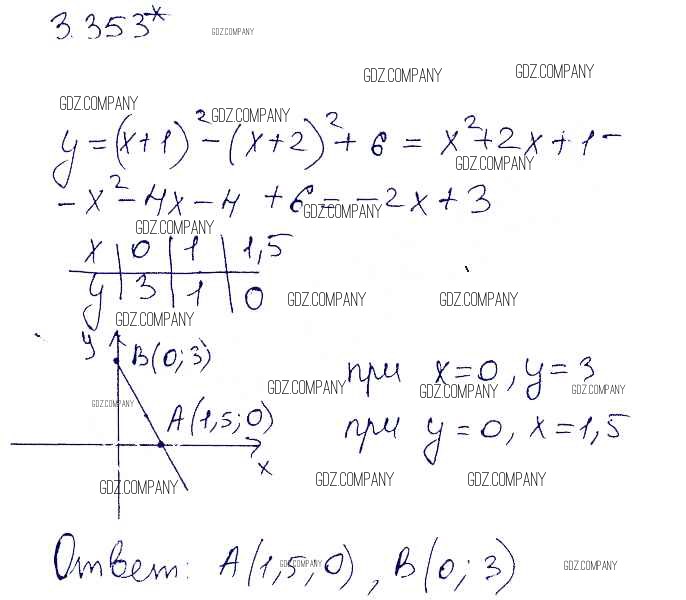 3.353*
GDZ.COMPANY
GDZ.COMPANY GDZ.COMPANY
GDZ.COMPANY GDZ.COMPANY
y = (x+1)² - (x+2)² + 6 = x² + 2x + 1 -
GDZ.COMPANY
- x² - 4x - 4 + 6 = -2x + 3
GDZ.COMPANY
GDZ.COMPANY
x | 0 | 1 | 1,5
y | 3 | 1 | 0
GDZ.COMPANY GDZ.COMPANY
GDZ.COMPANY
y B(0; 3)
при x=0, y=3
GDZ.COMPANY GDZ.COMPANY GDZ.COMPANY
GDZ.COMPANY
A(1,5; 0)
при y=0, x=1,5
x
GDZ.COMPANY GDZ.COMPANY GDZ.COMPANY
Ответ: A(1,5; 0), B(0; 3)
GDZ.COMPANY GDZ.COMPANY